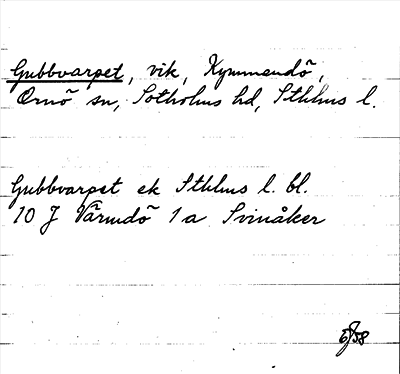 Gubbvarpet, vik, Kymmendö,
Ornö sn, Sotholms hd, Sthlms l.
Gubbvarpet ek Sthlms l. bl.
10 J Värmdö 1 a Svinåker